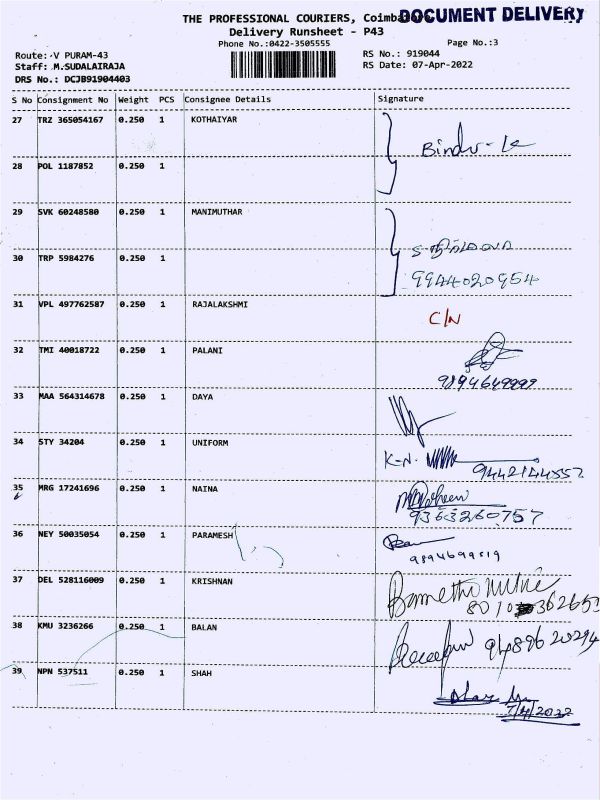 THE PROFESSIONAL COURIERS, Coimbatore
DOCUMENT DELIVERY
Delivery Runsheet - P43
Phone No.:0422-3505555
Page No.:3
Route: V PURAM-43
RS No.: 919044
Staff: M.SUDALAIRAJA
RS Date: 07-Apr-2022
DRS No.: DCJB91904403
S No Consignment No Weight PCS Consignee Details Signature
27 TRZ 365054167 0.250 1 KOTHAIYAR
Bindu-k
28 POL 1187852 0.250 1
29 SVK 60248580 0.250 1 MANIMUTHAR
30 TRP 5984276 0.250 1
9944020954
31 VPL 497762587 0.250 1 RAJALAKSHMI
C/N
32 TMI 40018722 0.250 1 PALANI
9894649999
33 MAA 564314678 0.250 1 DAYA
34 STY 34204 0.250 1 UNIFORM
K-N.
9442144552
35 MRG 17241696 0.250 1 NAINA
9363260757
36 NEY 50035054 0.250 1 PARAMESH
9894699519
37 DEL 528116009 0.250 1 KRISHNAN
38 KMU 3236266 0.250 1 BALAN
9489620294
39 NPN 537511 0.250 1 SHAH
7/4/2022